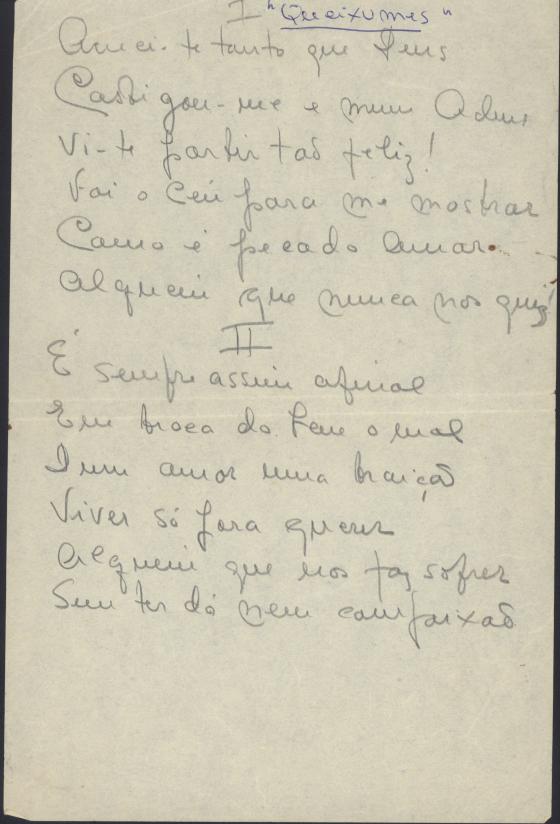 I "Queixumes"
Amei-te tanto que Deus
Castigou-me e num Adeus
Vi-te partir tão feliz!
Foi o Céu para me mostrar
Como é pecado Amar.
Alguem que nunca nos quiz
II
É sempre assim afinal
Em troca do bem o mal
Dum amor uma traição
Viver só para querer
Alguem que nos faz sofrer
Sem ter dó nem compaixão